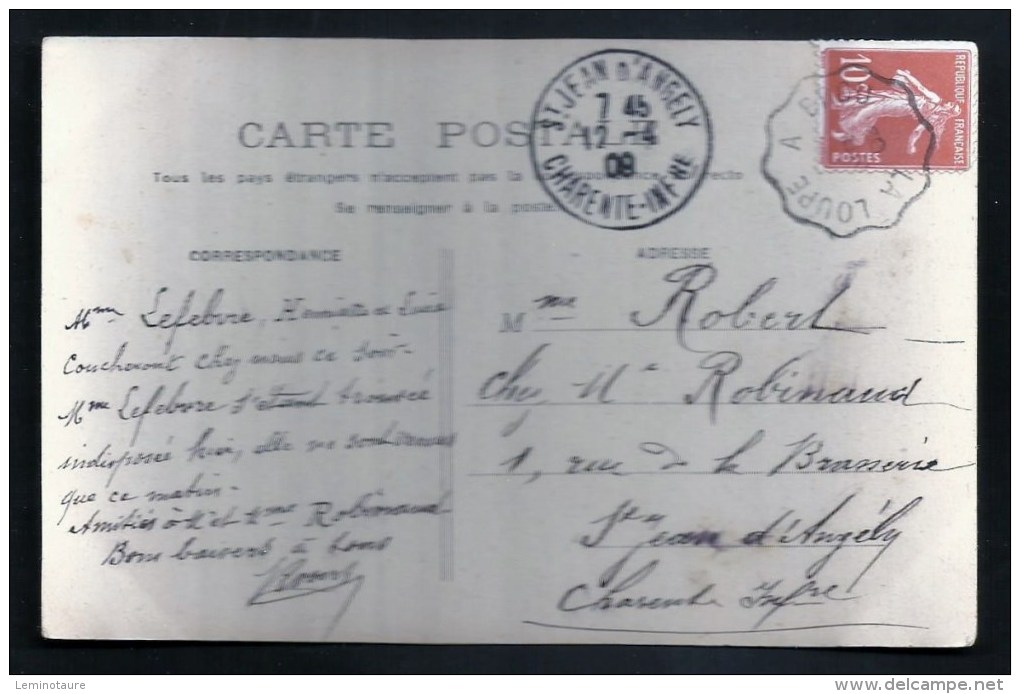 CARTE POSTALE
Tous les pays étrangers n'acceptent pas la
Se renseigner à la poste
ST JEAN D'ANGELY
7 45
12 - 4
09
CHARENTE-INFRE
LA LOUPE A
REPUBLIQUE FRANÇAISE
10c
POSTES
CORRESPONDANCE
Mme Lefebvre, Henriette et
coucheront chez nous ce soir.
Mme Lefebvre s'étant trouvée
indisposée hier, elle ne sont venues
que ce matin.
Amitiés à M et Mme Robinaud
Bons baisers à tous
Robert
ADRESSE
Mme Robert
chez Mr Robinaud
1, rue de la Brasserie
St Jean d'Angély
Charente Infre
Leminotaure
www.delcampe.net